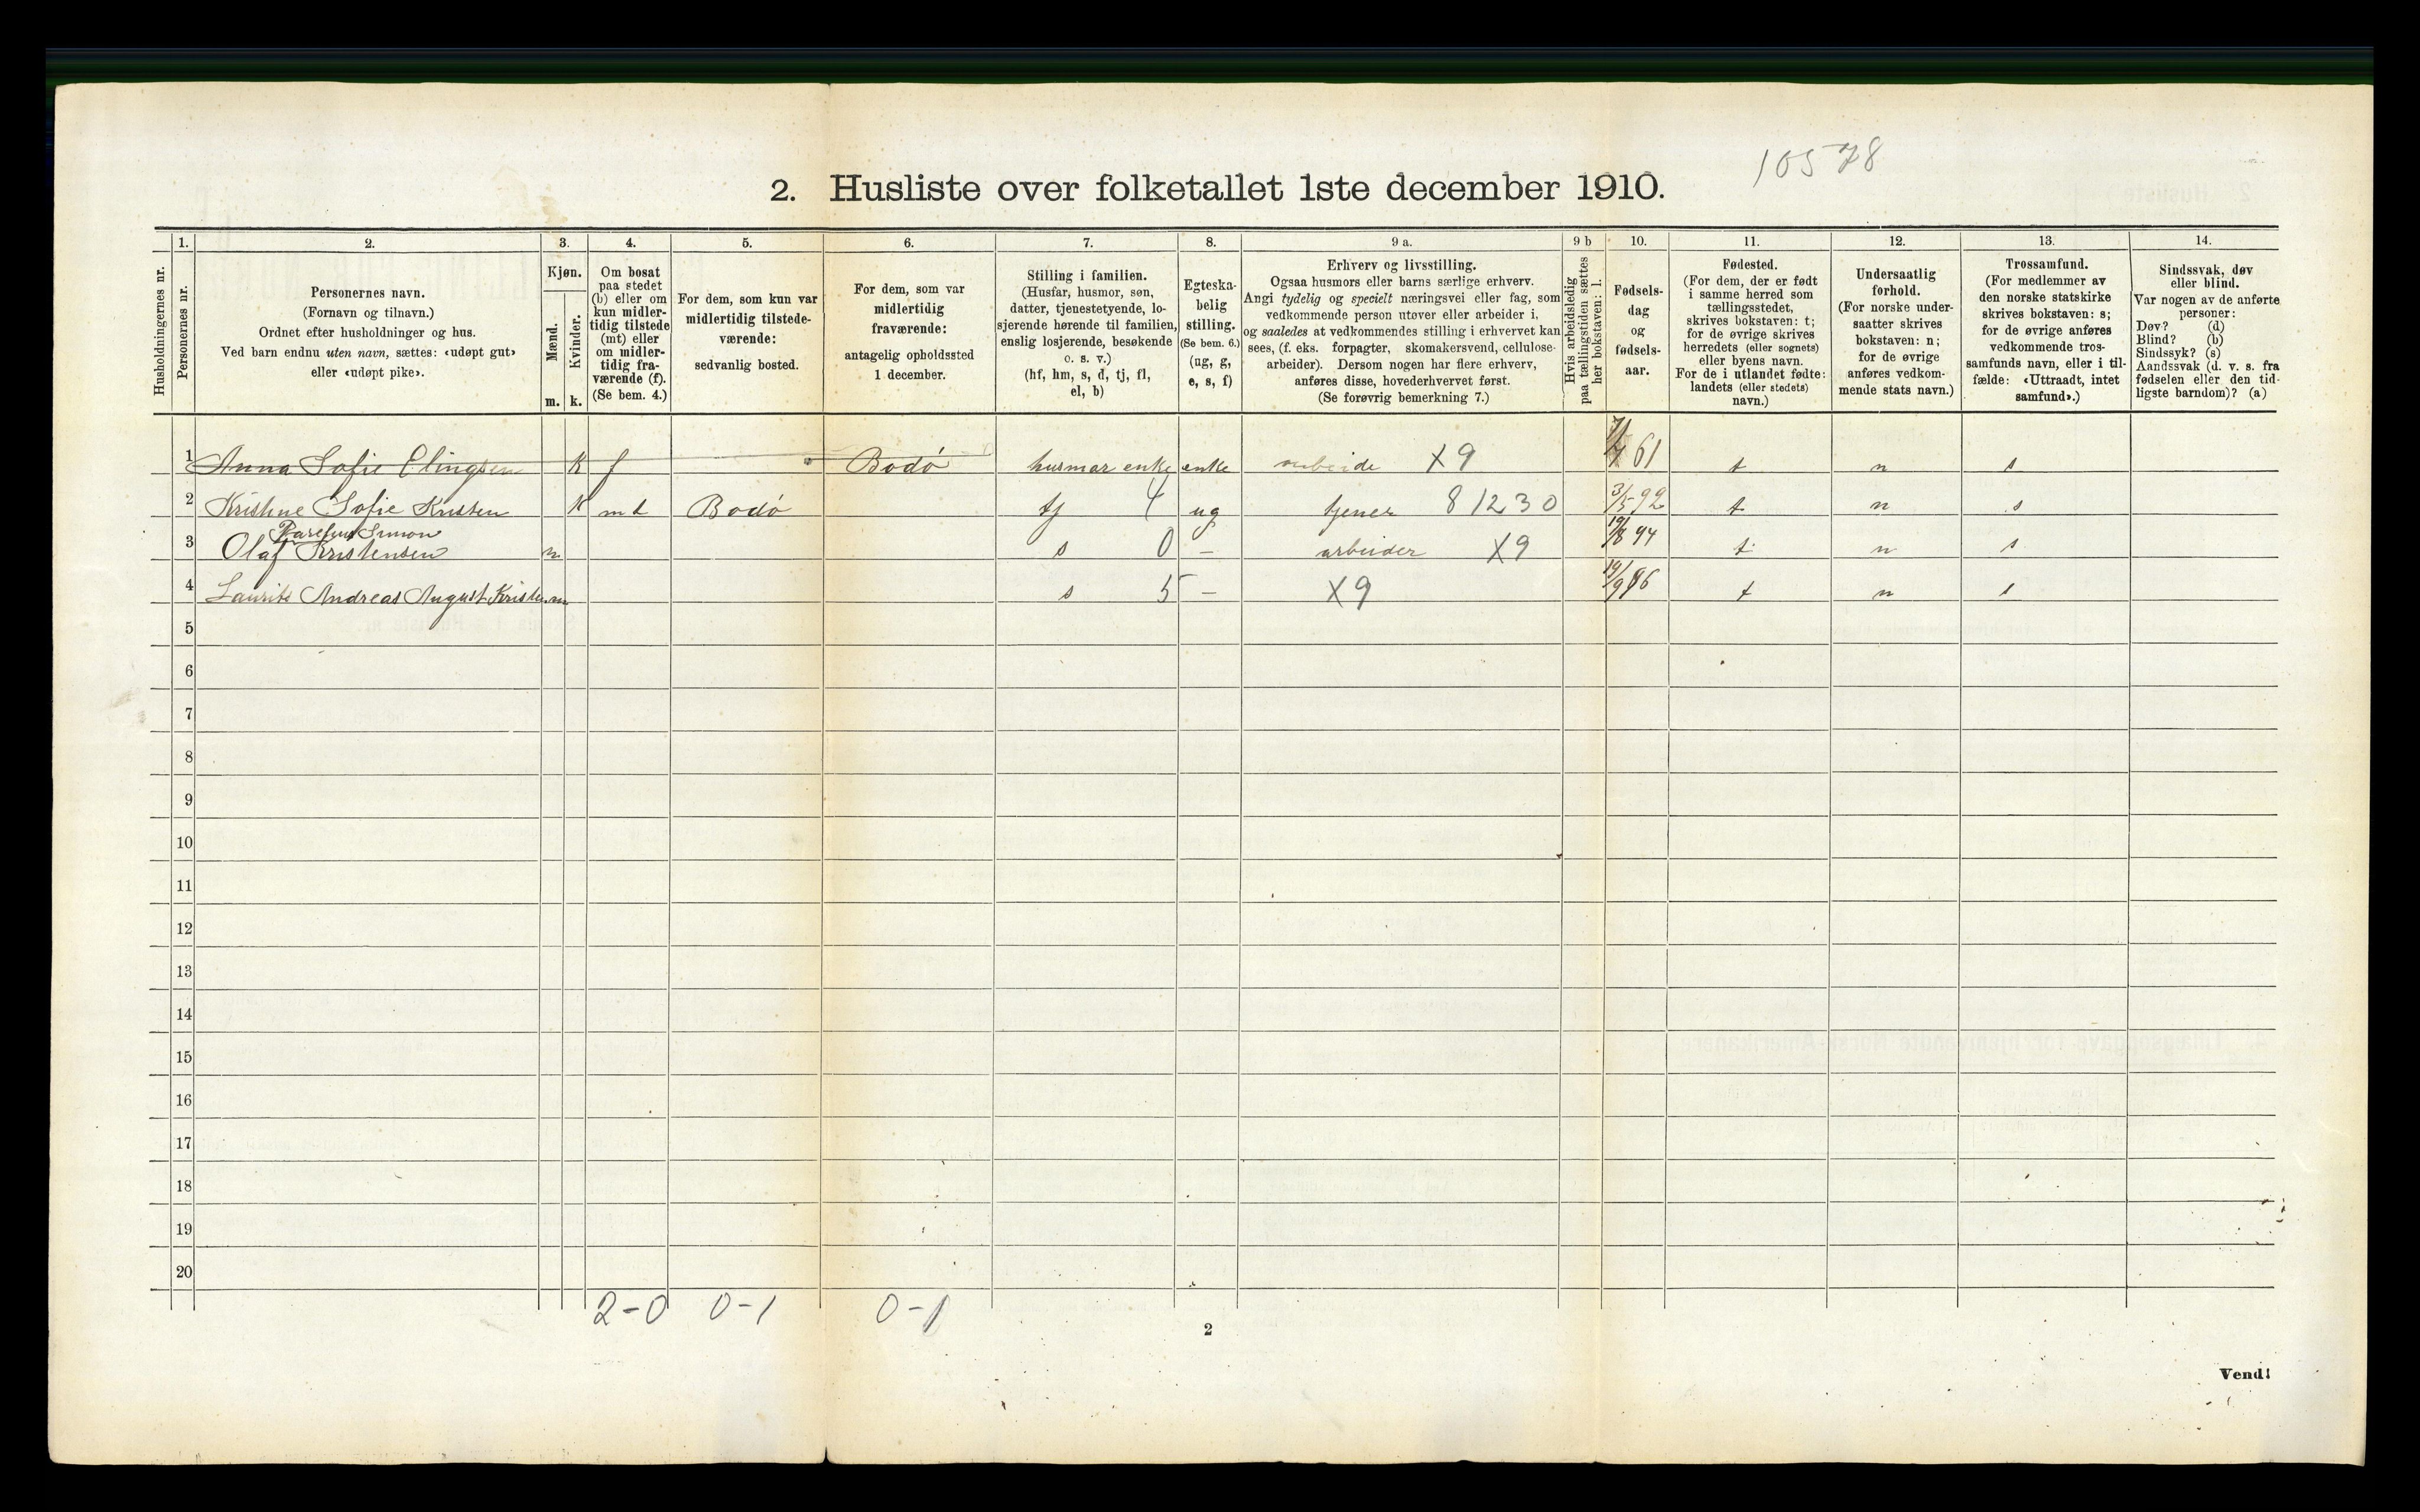 10578
2. Husliste over folketallet 1ste december 1910.
Husholdningernes nr.
1.
Personernes nr.
2.
Personernes navn.
(Fornavn og tilnavn.)
Ordnet efter husholdninger og hus.
Ved barn endnu uten navn, sættes: «udøpt gut»
eller «udøpt pike».
3.
Kjøn.
Mænd.
Kvinder.
m. k.
4.
Om bosat
paa stedet
(b) eller om
kun midler-
tidig tilstede
(mt) eller
om midler-
tidig fra-
værende (f).
(Se bem. 4.)
5.
For dem, som kun var
midlertidig tilstede-
værende:
sedvanlig bosted.
6.
For dem, som var
midlertidig
fraværende:
antagelig opholdssted
1 december.
7.
Stilling i familien.
(Husfar, husmor, søn,
datter, tjenestetyende, lo-
sjerende hørende til familien,
enslig losjerende, besøkende
o. s. v.)
(hf, hm, s, d, tj, fl,
el, b)
8.
Egteska-
belig
stilling.
(Se bem. 6.)
(ug, g,
e, s, f)
9 a.
Erhverv og livsstilling.
Ogsaa husmors eller barns særlige erhverv.
Angi tydelig og specielt næringsvei eller fag, som
vedkommende person utøver eller arbeider i,
og saaledes at vedkommendes stilling i erhvervet kan
sees, (f. eks. forpagter, skomakersvend, cellulose-
arbeider). Dersom nogen har flere erhverv,
anføres disse, hovederhvervet først.
(Se forøvrig bemerkning 7.)
9 b
Hvis arbeidsledig
paa tællingstiden sættes
her bokstaven: l.
10.
Fødsels-
dag
og
fødsels-
aar.
11.
Fødested.
(For dem, der er født
i samme herred som
tællingsstedet,
skrives bokstaven: t;
for de øvrige skrives
herredets (eller sognets)
eller byens navn.
For de i utlandet fødte:
landets (eller stedets)
navn.)
12.
Undersaatlig
forhold.
(For norske under-
saatter skrives
bokstaven: n;
for de øvrige
anføres vedkom-
mende stats navn.)
13.
Trossamfund.
(For medlemmer av
den norske statskirke
skrives bokstaven: s;
for de øvrige anføres
vedkommende tros-
samfunds navn, eller i til-
fælde: «Uttraadt, intet
samfund».)
14.
Sindssvak, døv
eller blind.
Var nogen av de anførte
personer:
Døv? (d)
Blind? (b)
Sindssyk? (s)
Aandssvak (d. v. s. fra
fødselen eller den tid-
ligste barndom)? (a)
1 Anna Sofie Elingsen K f Bodö husmor enke enke arbeide X9 61 t n s
2 Kristine Sofie Kristen K mt Bodö tj 4 ug tjener 81230 3/5 92 t n s
Simon
3 Olaf Kristensen m s 0 — arbeider X9 19/8 94 t n s
4 Laurits Andreas August Kristen m s 5 — X9 19/9 96 t n s
5
6
7
8
9
10
11
12
13
14
15
16
17
18
19
20
2-0 0-1 0-1
2
Vend!